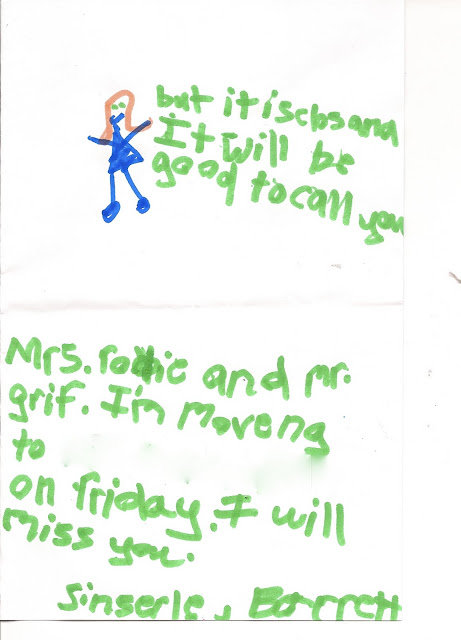 but it iscbsand
It will be
good to call you
Mrs. rothie and mr.
grif. I'm moveng
to
on friday. I will
miss you.
Sinserle, Barrett